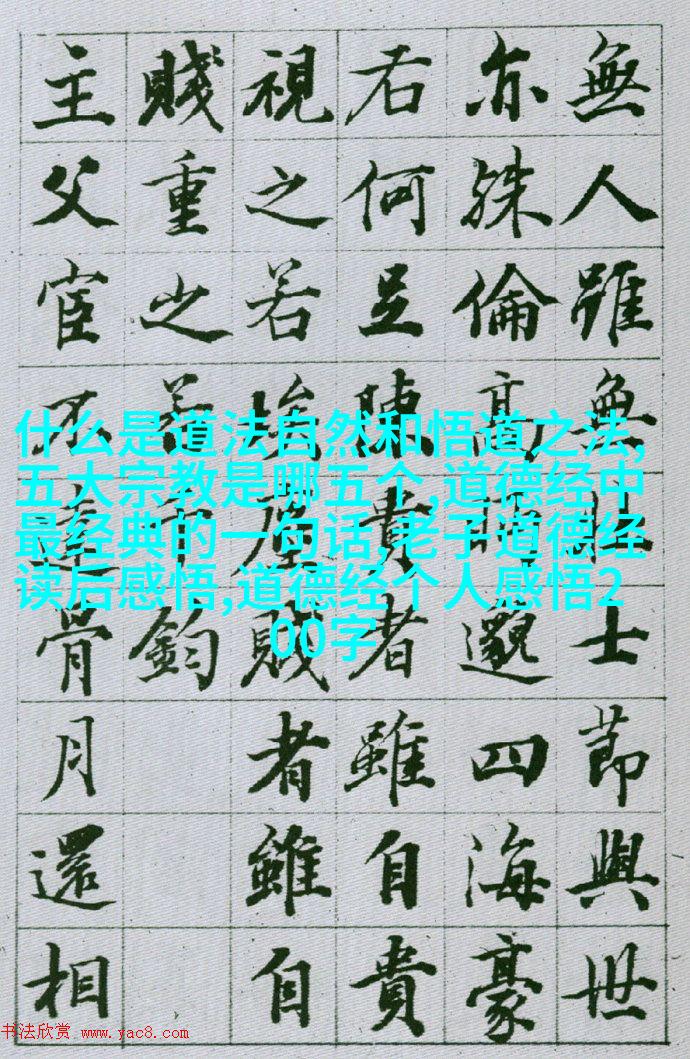 無人雖無壯士節與世
亦殊倫高眄邈四海豪
右何足陳貴者雖自貴
視之若埃塵賤者雖自
賤重之若千鈞
主父宦不達骨月還相
什么是道法自然和悟道之法,
五大宗教是哪五个,道德经中
最经典的一句话,老子道德经
读后感悟,道德经个人感悟2
00字
书法欣赏 www.yac8.com